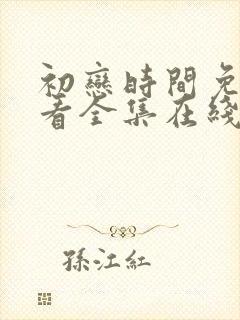 初戀時間免
看全集在綫
孫江紅